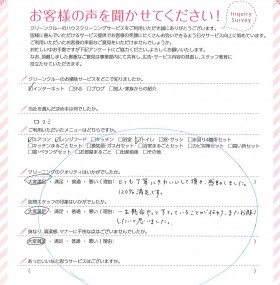 お客様の声を聞かせてください!
Inquiry
Survey
グリーングルーのハウスクリーニングサービスをご利用いただき誠にありがとうございます。
皆様に喜んでいただけるサービス提供でお客様の笑顔にたくさん出会いできるよう日々サービス向上に努めています。
ご利用いただいたお客様の率直なご意見をいただけませんでしょうか。
お忙しい中お手数ですが下記アンケートにご協力くださいますようよろしくお願いいたします。
役立たせていただきます。
グリーングルーのお掃除サービスをどこで知りましたか。
インターネット □SNS □ブログ □個人・家族からの紹介
当社を選んだ決め手は何でしたか。
口コミ
ご利用いただいたメニューはどちらですか。
エアコン レンジフード □キッチン □浴室 トイレ □洗面所 □水回り4箇所セット
クリーニングのクオリティはいかがでしたか。
大変満足・満足・普通・悪い(理由)
とても丁寧にきれいにして頂き、感動しました。
120%満足です。
担当スタッフの対応はいかがでしたか。
大変満足・満足・普通・悪い(理由)
一生懸命やって下さっていることが伝わり、またお願い
したいと思いました。
身なり、清潔感、マナーに不快な点はございませんでしたか。
大変満足・満足・普通・悪い(理由)
あったらいいなと思うサービスはございますか。